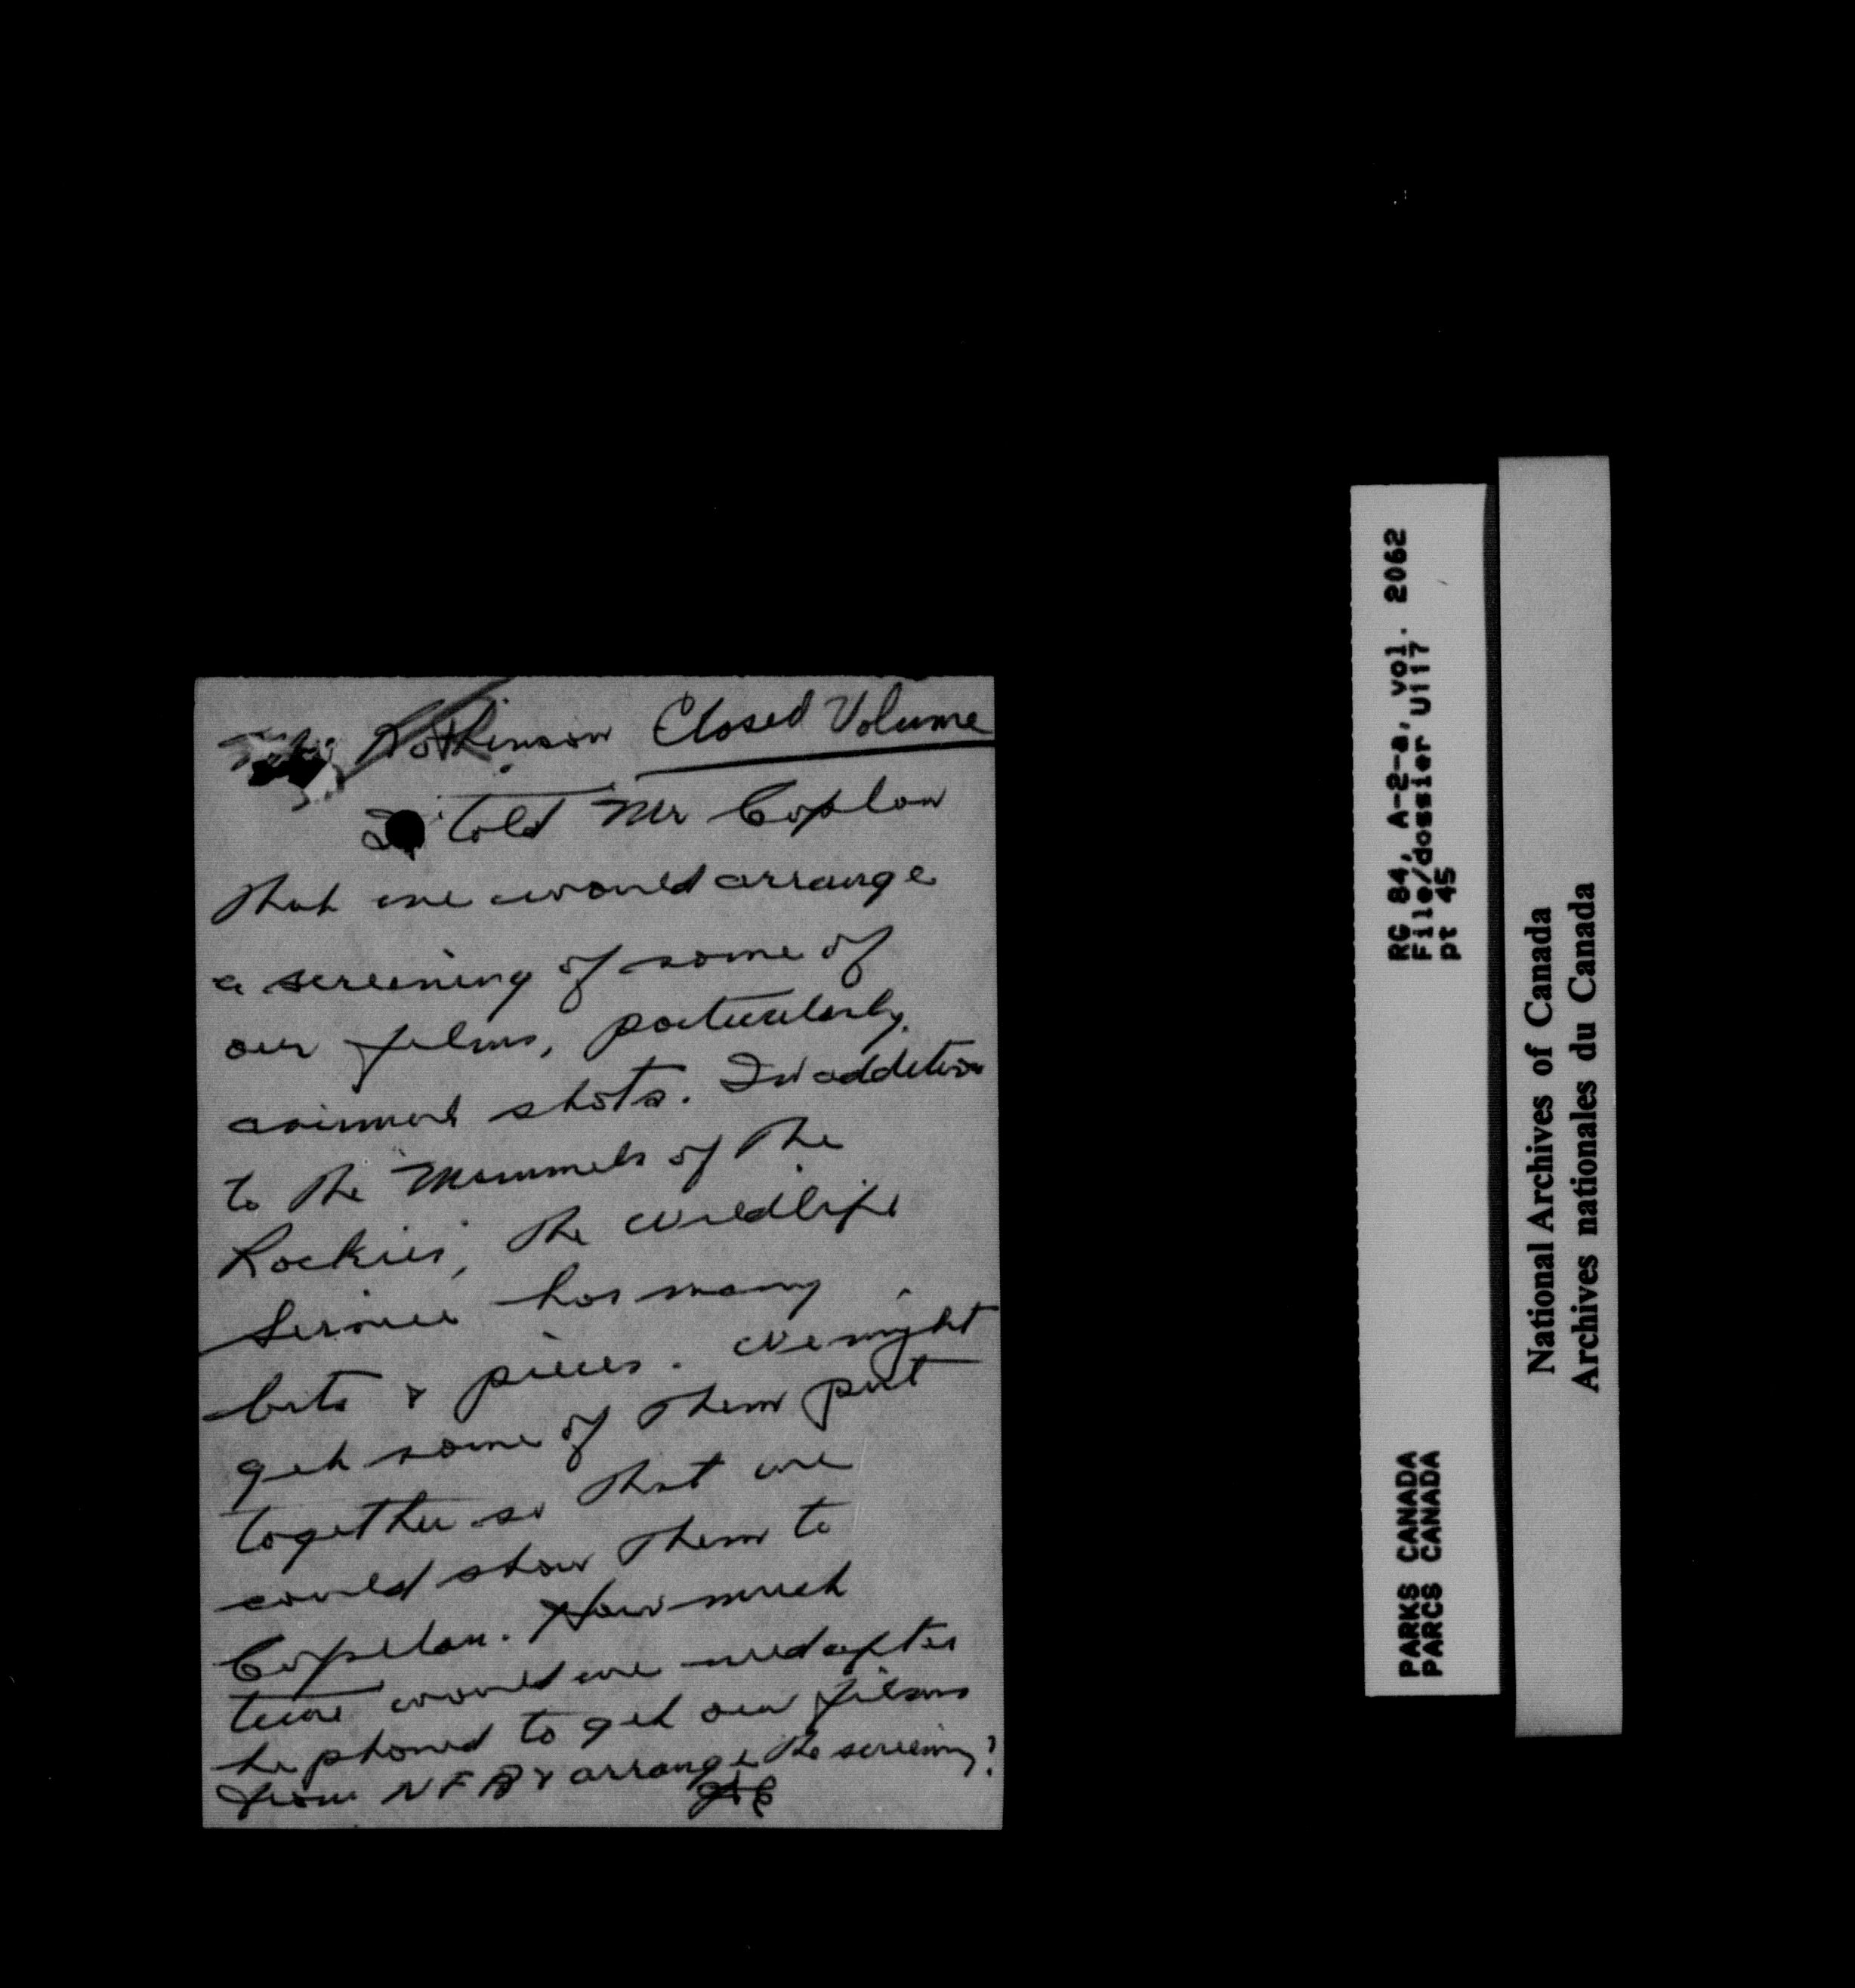 Closed Volume
I told Mr Coplan
that we would arrange
a screening of some of
our films, particularly
animal shots. In addition
to the Mammals of the
Rockies, the Wildlife
Service has many
bits & pieces. We might
get some of them put
together so that we
could show them to
Copelan. How much
time would we need after
he phoned to get our films
from NFB & arrange the screening?
RG 84, A-2-a, vol. 2062
File/dossier U117
pt 45
PARKS CANADA
PARCS CANADA
National Archives of Canada
Archives nationales du Canada